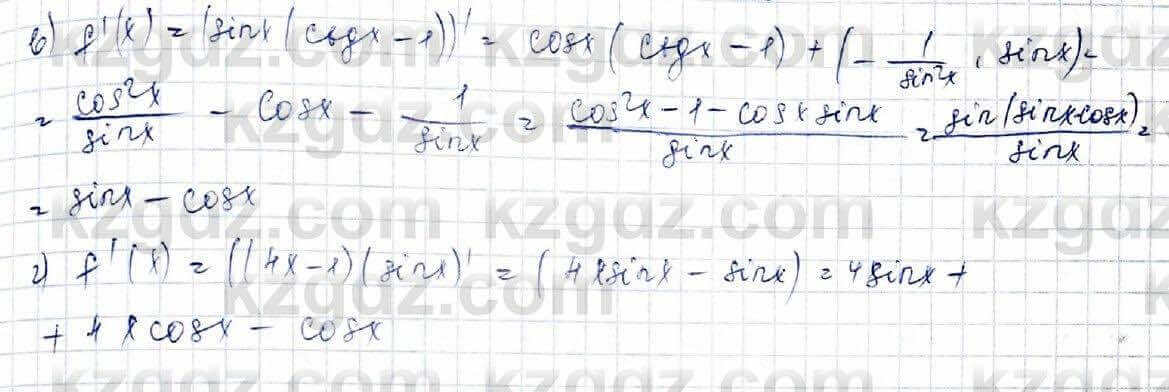 в) f'(x) = (sinx(ctgx-1))' = cosx(ctgx-1)+(-1/sin²x · sinx)=
= cos²x/sinx - cosx - 1/sinx = (cos²x-1-cosxsinx)/sinx = sin(sinx-cosx)/sinx =
= sinx - cosx
г) f'(x) = ((4x-1)(sinx)' = (4xsinx - sinx) = 4sinx +
+ 4xcosx - cosx
kzgdz.com